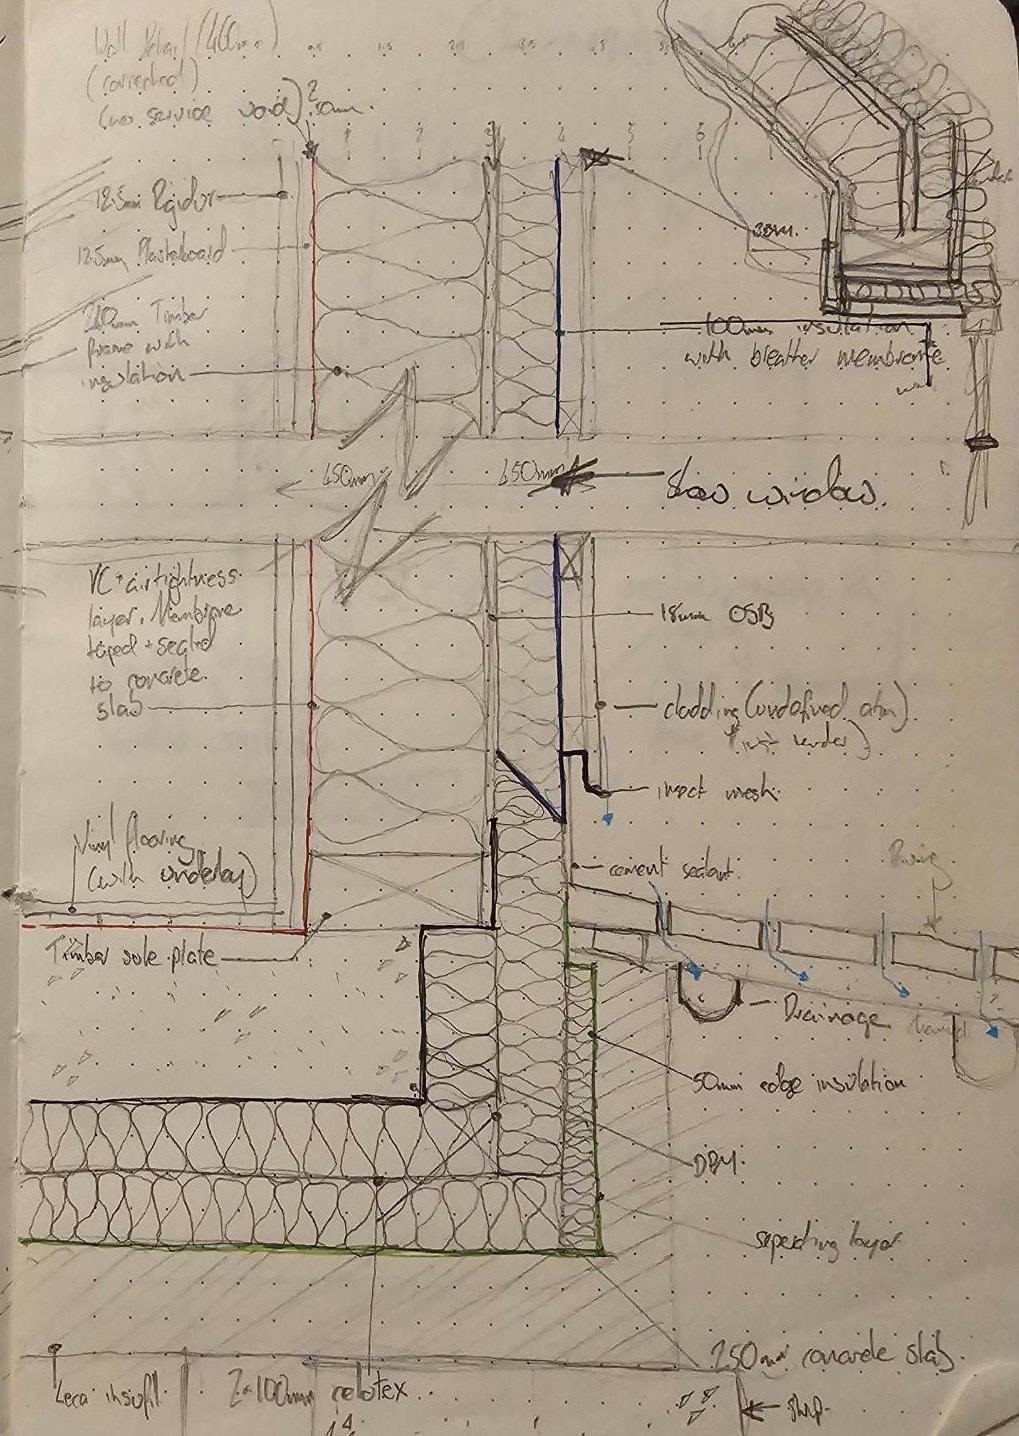 Wall Detail (400mm)
(corrected)
(no service void)
50mm.
12.5mm Rigidur
12.5mm Plasterboard
Timber
frame with
insulation
38mm.
100mm insulation
with breather membrane
450mm
450mm
Show window.
VC + airtightness
layer. Membrane
taped + sealed
to concrete
slab
18mm OSB
cladding (undefined atm)
insect mesh.
cement sealant.
Vinyl flooring
(with underlay)
Timber sole plate
Paving
Drainage channel
50mm edge insulation
DPM.
seperating layer
250mm concrete slab.
Leca insufill.
2*100mm celotex